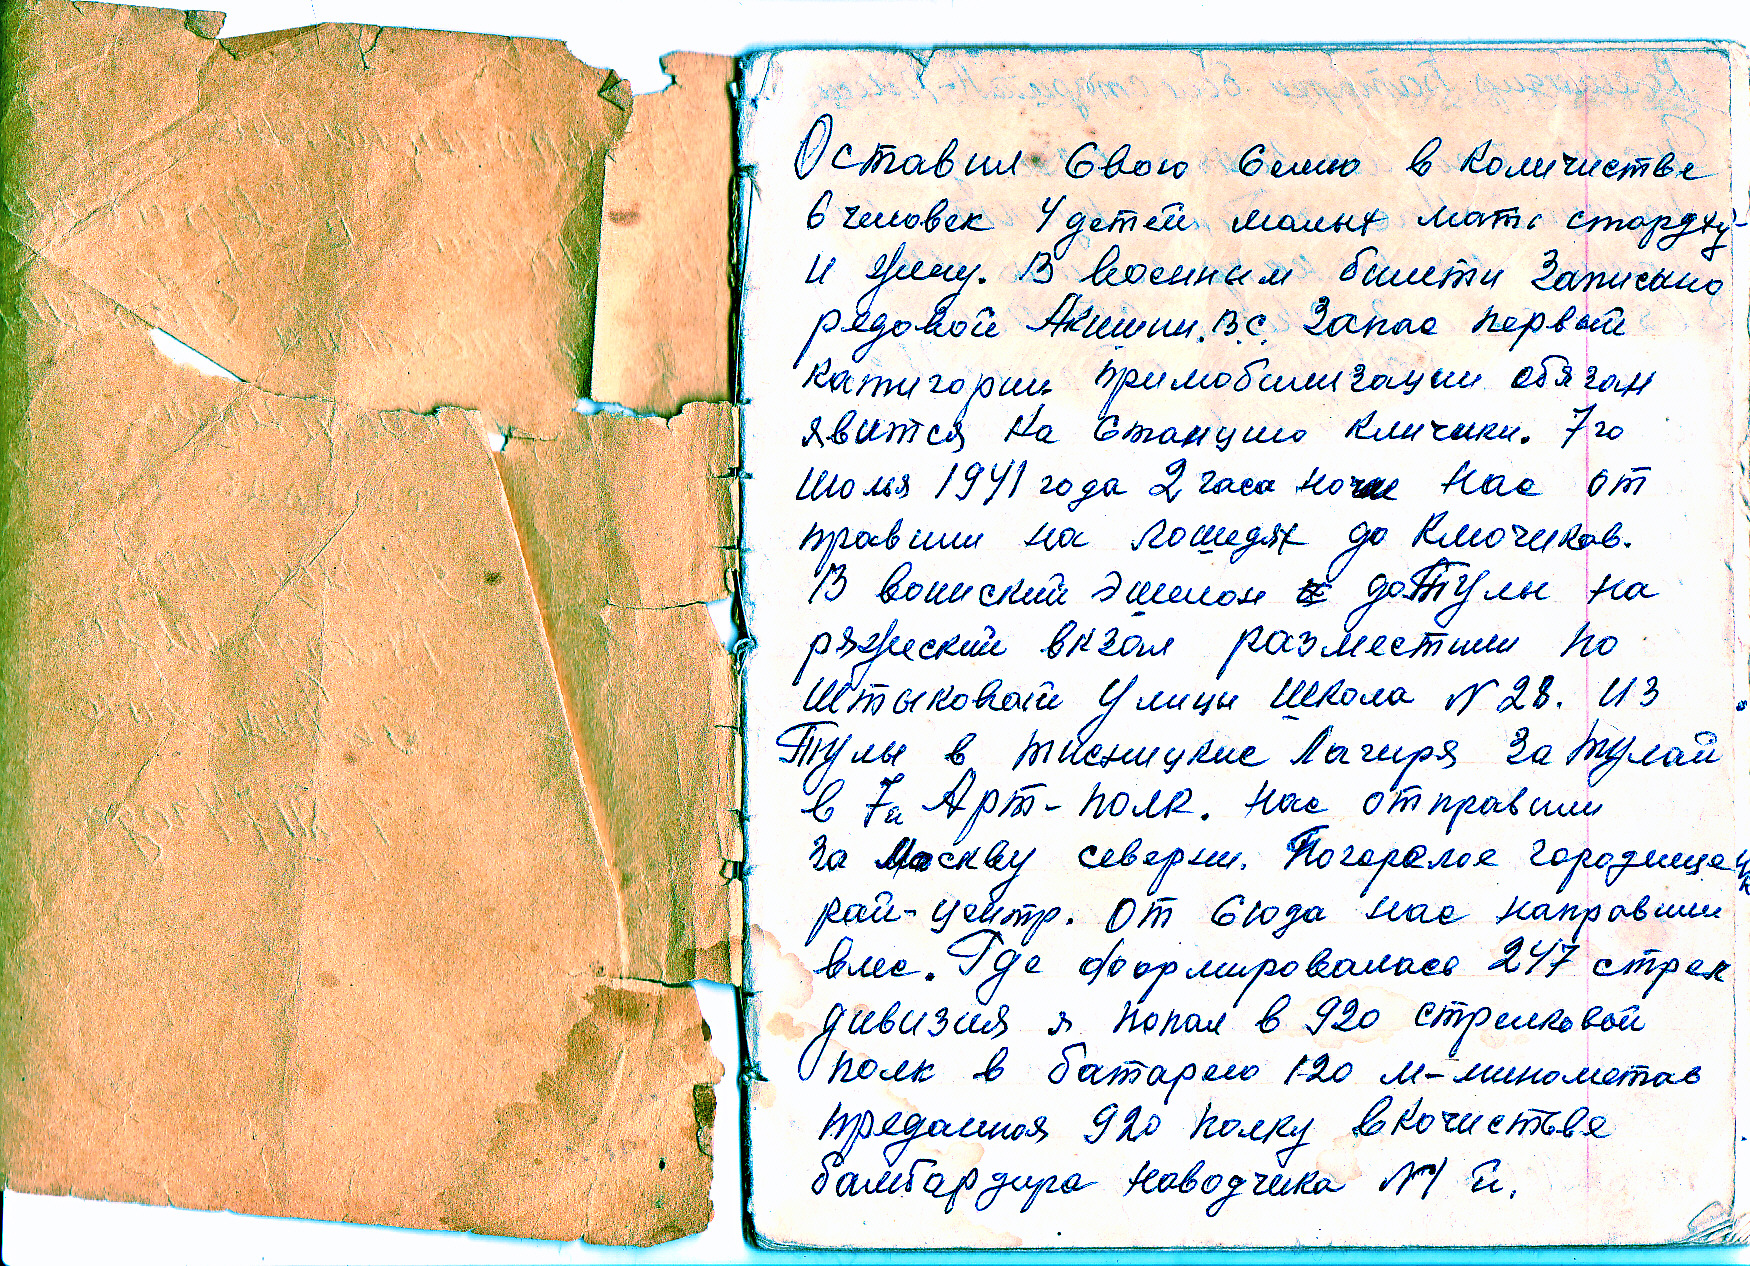 Оставил Свою Семю в Количистве
6 человек 4 детей малых мать старуху
и жену. В военным билети Записано
рядовой Акишин. В.С. Запас первый
категории при мобилизации обязан
явится На Станцию Ключики. 7го
Июля 1941 года 2 часа ночи Нас от
правили на лошадях до Ключиков.
В воинский Эшилон до Тулы на
ряжский вкзал разместили по
Штыковой Улицы Школа №28. Из
Тулы в тисницкие Лагиря За тулай
в 7й Арт-полк. Нас отправили
За Москву северни. Погорелое городище
рай-центр. От Сюда нас направили
влес. Где формировалась 247 стрел
дивизия я попал в 920 стрелковой
полк в батарею 120 м-минометав
преданная 920 полку вкочистве
бамбардира Наводчика №1 й.